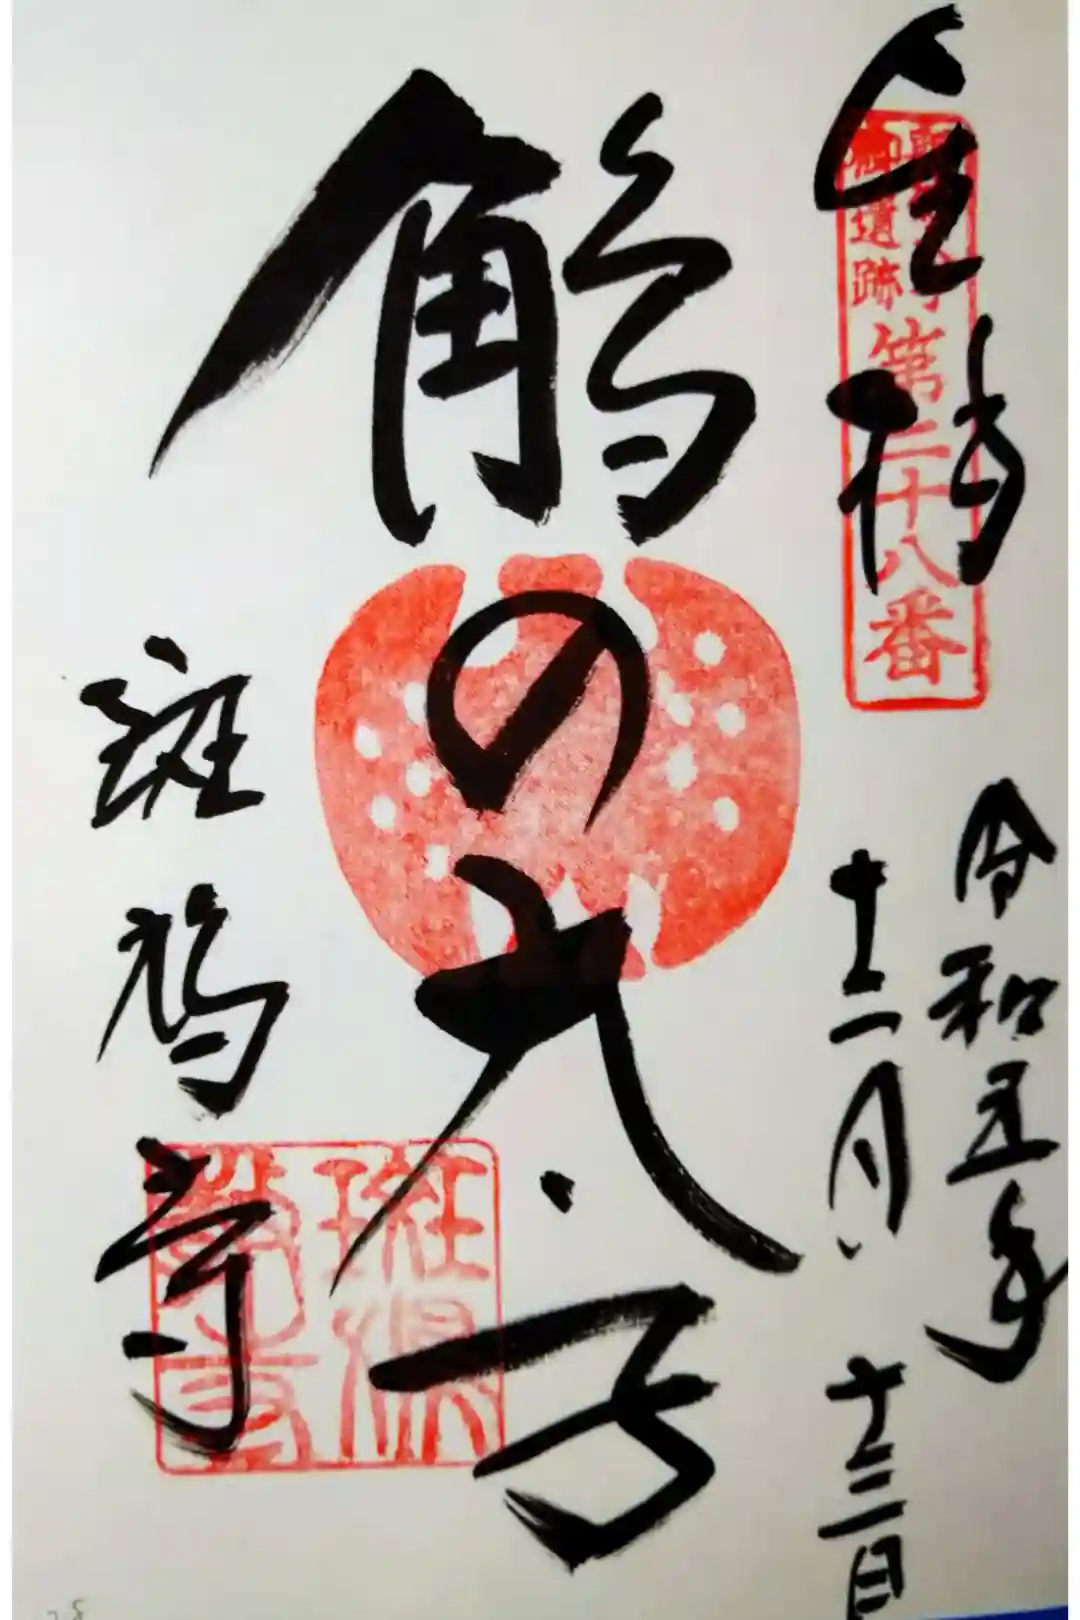 奉拝
聖徳太子
御遺跡
第二十八番
令和五年
十二月十三日
鵤の太子
斑鳩寺